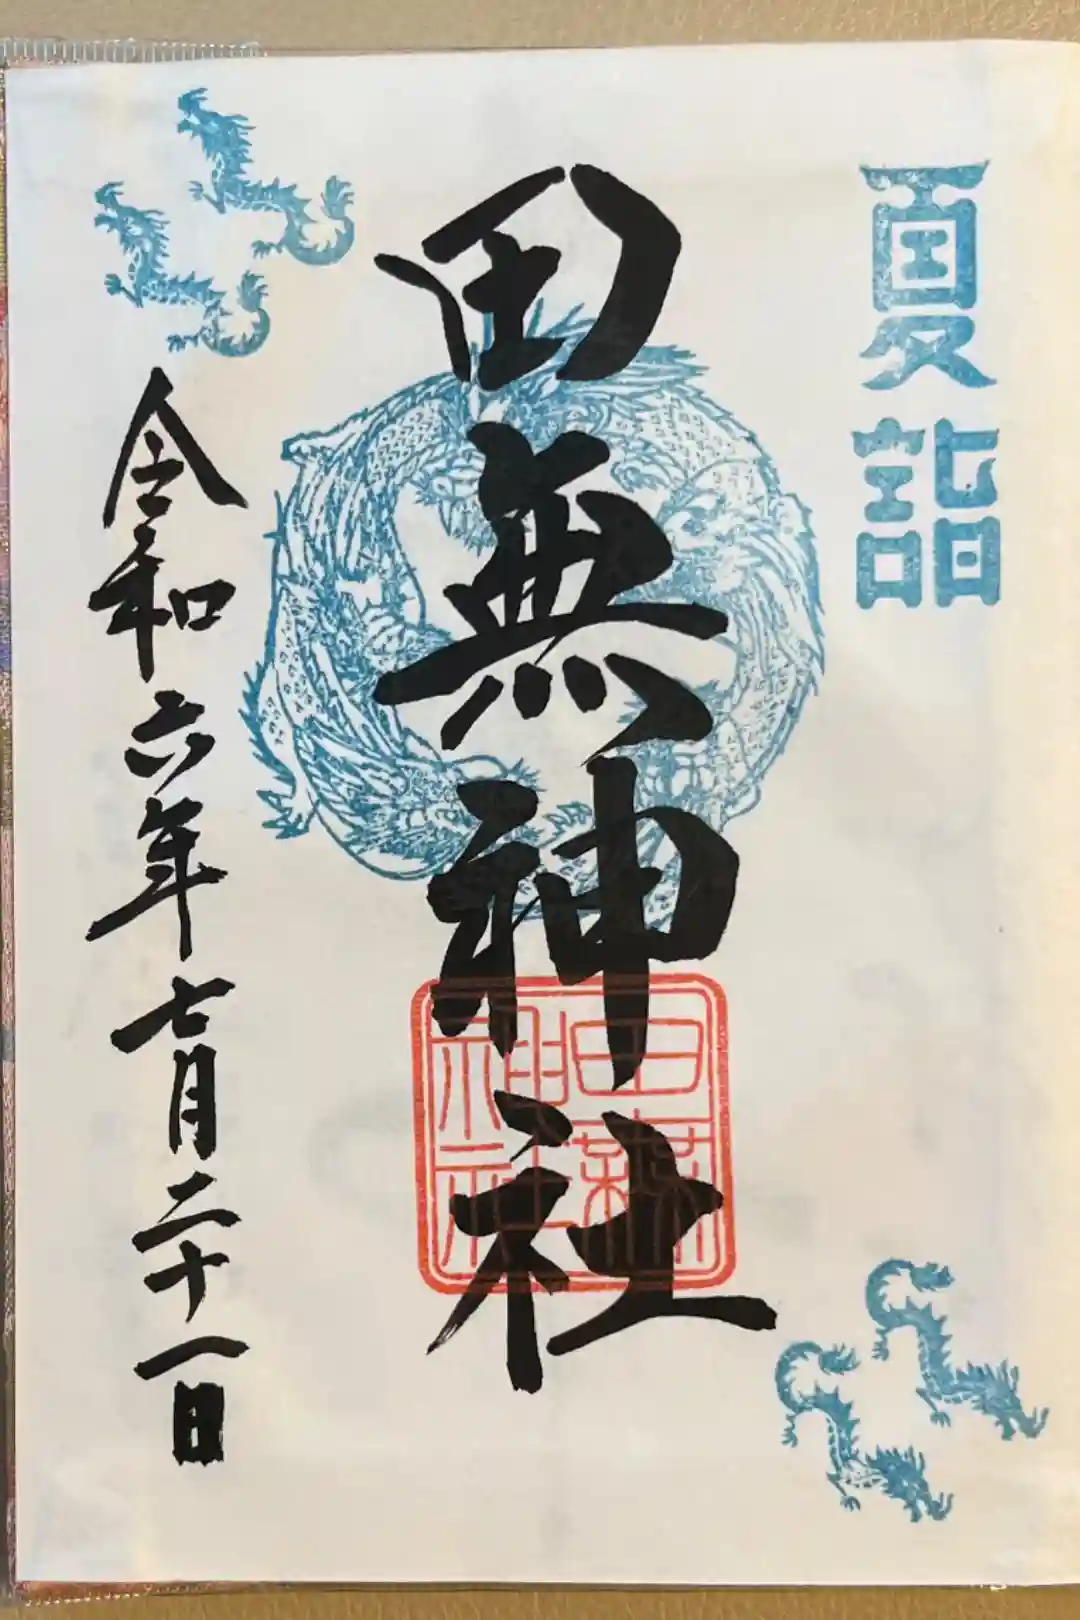 夏詣
田無神社
田無神社
令和六年七月二十一日